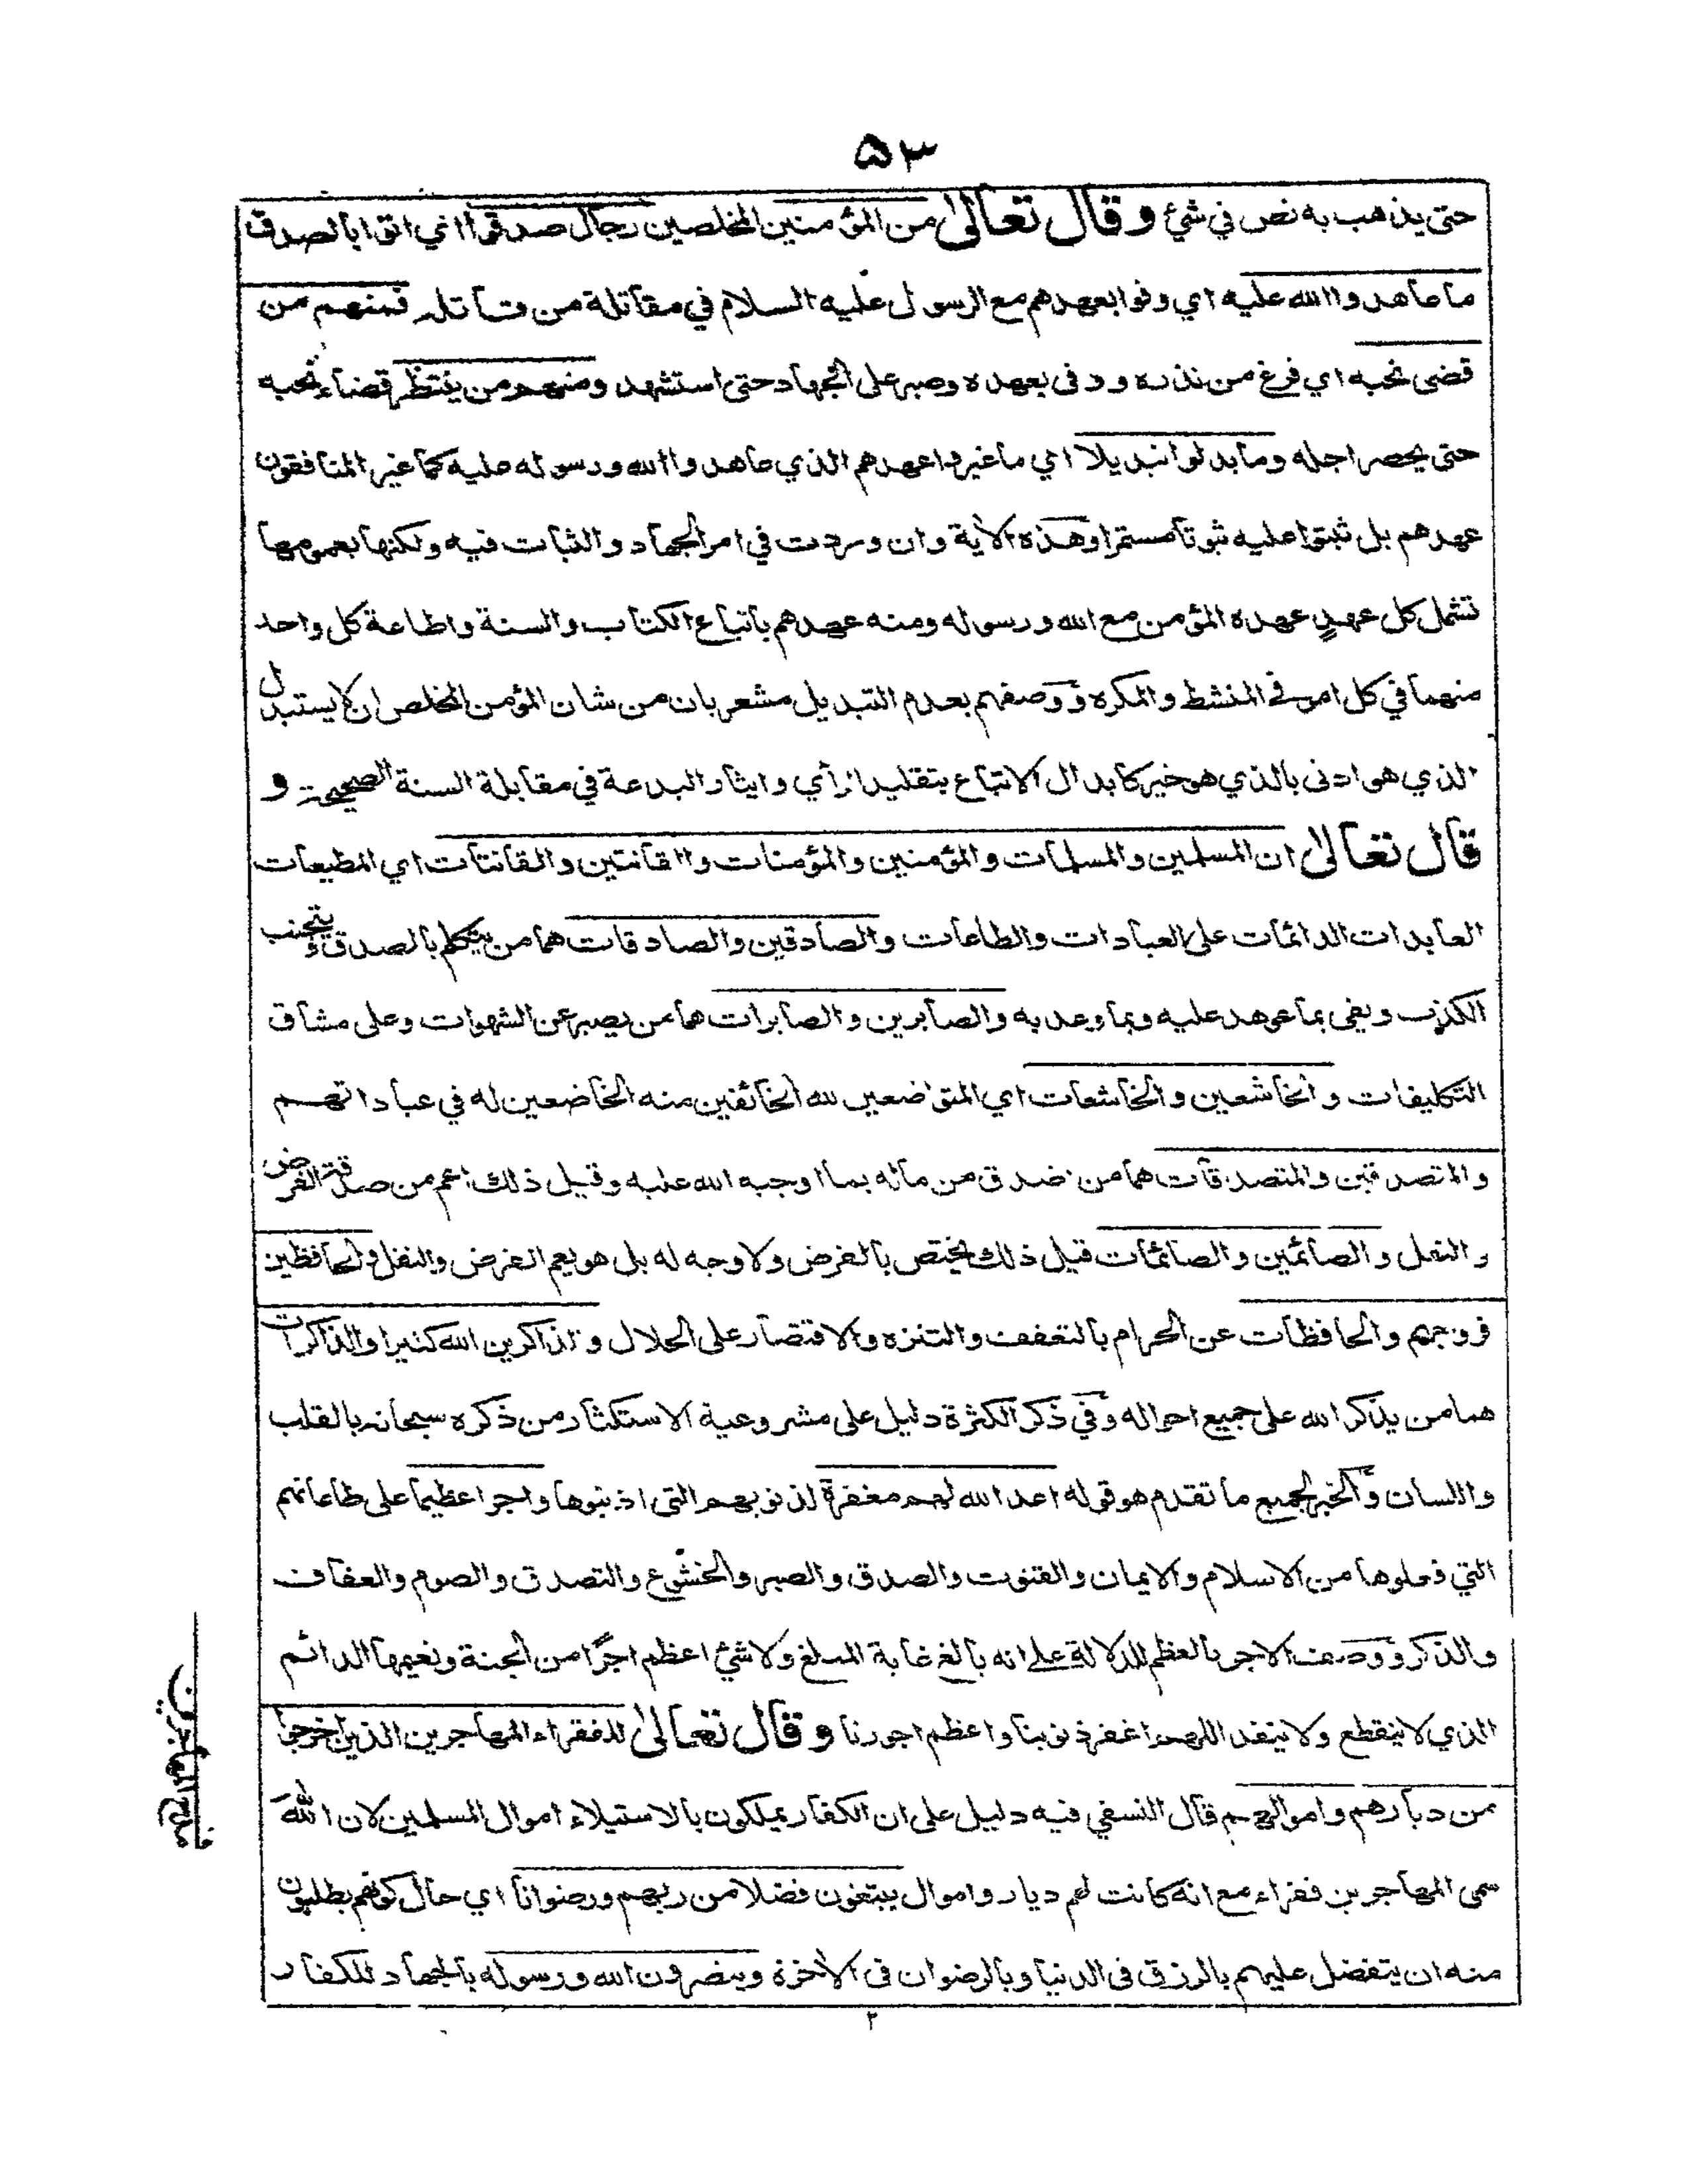 ٥٣
حتى يذهب به نص في شيء وقال تعالى من المؤمنين المخلصين رجال صدقوا اي اتوا بالصدق
ما عاهدوا الله عليه اي وفوا بعهدهم مع الرسول عليه السلام في مقاتلة من قاتله فمنهم من
قضى نحبه اي فرغ من نذره ووفى بعهده وصبر على الجهاد حتى استشهد ومنهم من ينتظر قضاء نحبه
حتى يحصر اجله وما بدلوا تبديلا اي ما غيروا عهدهم الذي عاهدوا الله ورسوله عليه كما غير المنافقون
عهدهم بل ثبتوا عليه ثبوتا مستمرا وهذه الآية وان وردت في امر الجهاد والثبات فيه ولكنها بعمومها
تشمل كل عهدٍ عهده المؤمن مع الله ورسوله ومنه عهدهم باتباع الكتاب والسنة واطاعة كل واحد
منهما في كل امر في المنشط والمكره ووصفهم بعدم التبديل مشعر بان من شان المؤمن المخلص ان لا يستبدل
الذي هو ادنى بالذي هو خير كابدال الاتباع بتقليد الرأي وايثار البدعة في مقابلة السنة الصحيحة و
قال تعالى ان المسلمين والمسلمات والمؤمنين والمؤمنات والقانتين والقانتات اي المطيعات
العابدات الدائمات على العبادات والطاعات والصادقين والصادقات هما من يتكلم بالصدق ويتجنب
الكذب ويفي بما عوهد عليه وبما وعد به والصابرين والصابرات هما من يصبر عن الشهوات وعلى مشاق
التكليفات والخاشعين والخاشعات اي المتواضعين لله الخائفين منه الخاضعين له في عباداتهم
والمتصدقين والمتصدقات هما من تصدق من ماله بما اوجبه الله عليه وقيل ذلك اعم من صدقة الفرض
والنفل والصائمين والصائمات قيل ذلك يختص بالفرض ولا وجه له بل هو يعم الفرض والنفل والحافظين
فروجهم والحافظات عن الحرام بالتعفف والتنزه والاقتصار على الحلال والذاكرين الله كثيرا والذاكرات
هما من يذكر الله على جميع احواله وفي ذكر الكثرة دليل على مشروعية الاستكثار من ذكره سبحانه بالقلب
واللسان والخبر لجميع ما تقدم هو قوله اعد الله لهم مغفرة لذنوبهم التي اذنبوها واجرا عظيما على طاعاتهم
التي فعلوها من الاسلام والايمان والقنوت والصدق والصبر والخشوع والتصدق والصوم والعفاف
والذكر ووصف الاجر بالعظم للدلالة على انه بالغ غاية المبلغ ولا شيء اعظم اجرًا من الجنة ونعيمها الدائم
الذي لا ينقطع ولا ينفد اللهم اغفر ذنوبنا واعظم اجورنا وقال تعالى للفقراء المهاجرين الذين اخرجوا
من ديارهم واموالهم قال النسفي فيه دليل على ان الكفار يملكون بالاستيلاء اموال المسلمين لان الله
سمى المهاجرين فقراء مع انه كانت لهم ديار واموال يبتغون فضلا من ربهم ورضوانا اي حال كونهم يطلبون
منه ان يتفضل عليهم بالرزق في الدنيا وبالرضوان في الآخرة وينصرون الله ورسوله بالجهاد للكفار
مدح المهاجرين